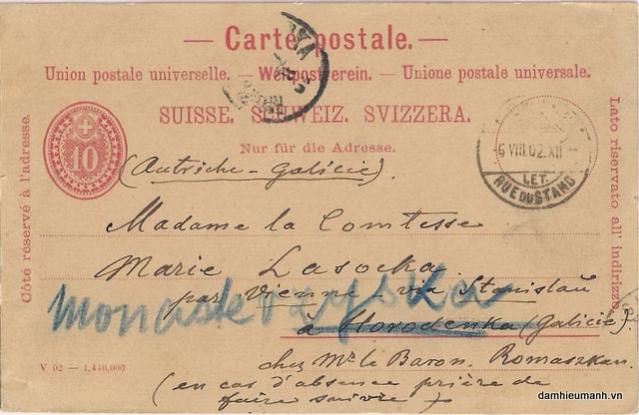 — Carte postale. —
Union postale universelle. — Weltpostverein. — Unione postale universale.
SUISSE. SCHWEIZ. SVIZZERA.
Nur für die Adresse.
10
Côté réservé à l'adresse.
Lato riservato all' indirizzo.
6 VIII.02.XII
LET.
RUE DU STAND
(Autriche - Galicie).
Madame la Comtesse
Marie Lasocka
par Vienne via Stanislau
Monasterzyska
à Horodenka (Galicie)
chez Mr. le Baron. Romaszkan.
(en cas d'absence prière de
faire suivre)
V 02 — 1,440,000
damhieumanh.vn